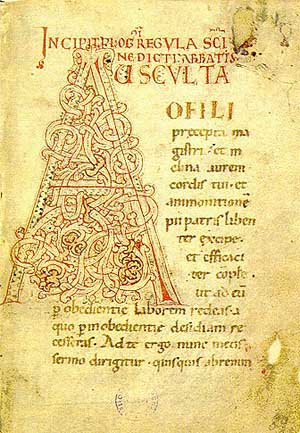 INCIPIT PLOG REGULA SCI
NEDICTI ABBATIS
AUSCULTA
O FILI
precepta ma
gistri · et in
clina aurem
cordis tui · et
ammonitione
pii patris liben
ter excipe ·
et efficaci
ter cople ·
ut ad eū
ꝑ obedientie laborem redeas a
quo ꝑ inobedientie desidiam re
cesseras. Ad te ergo nunc meus
sermo dirigitur · quisquis abrenun